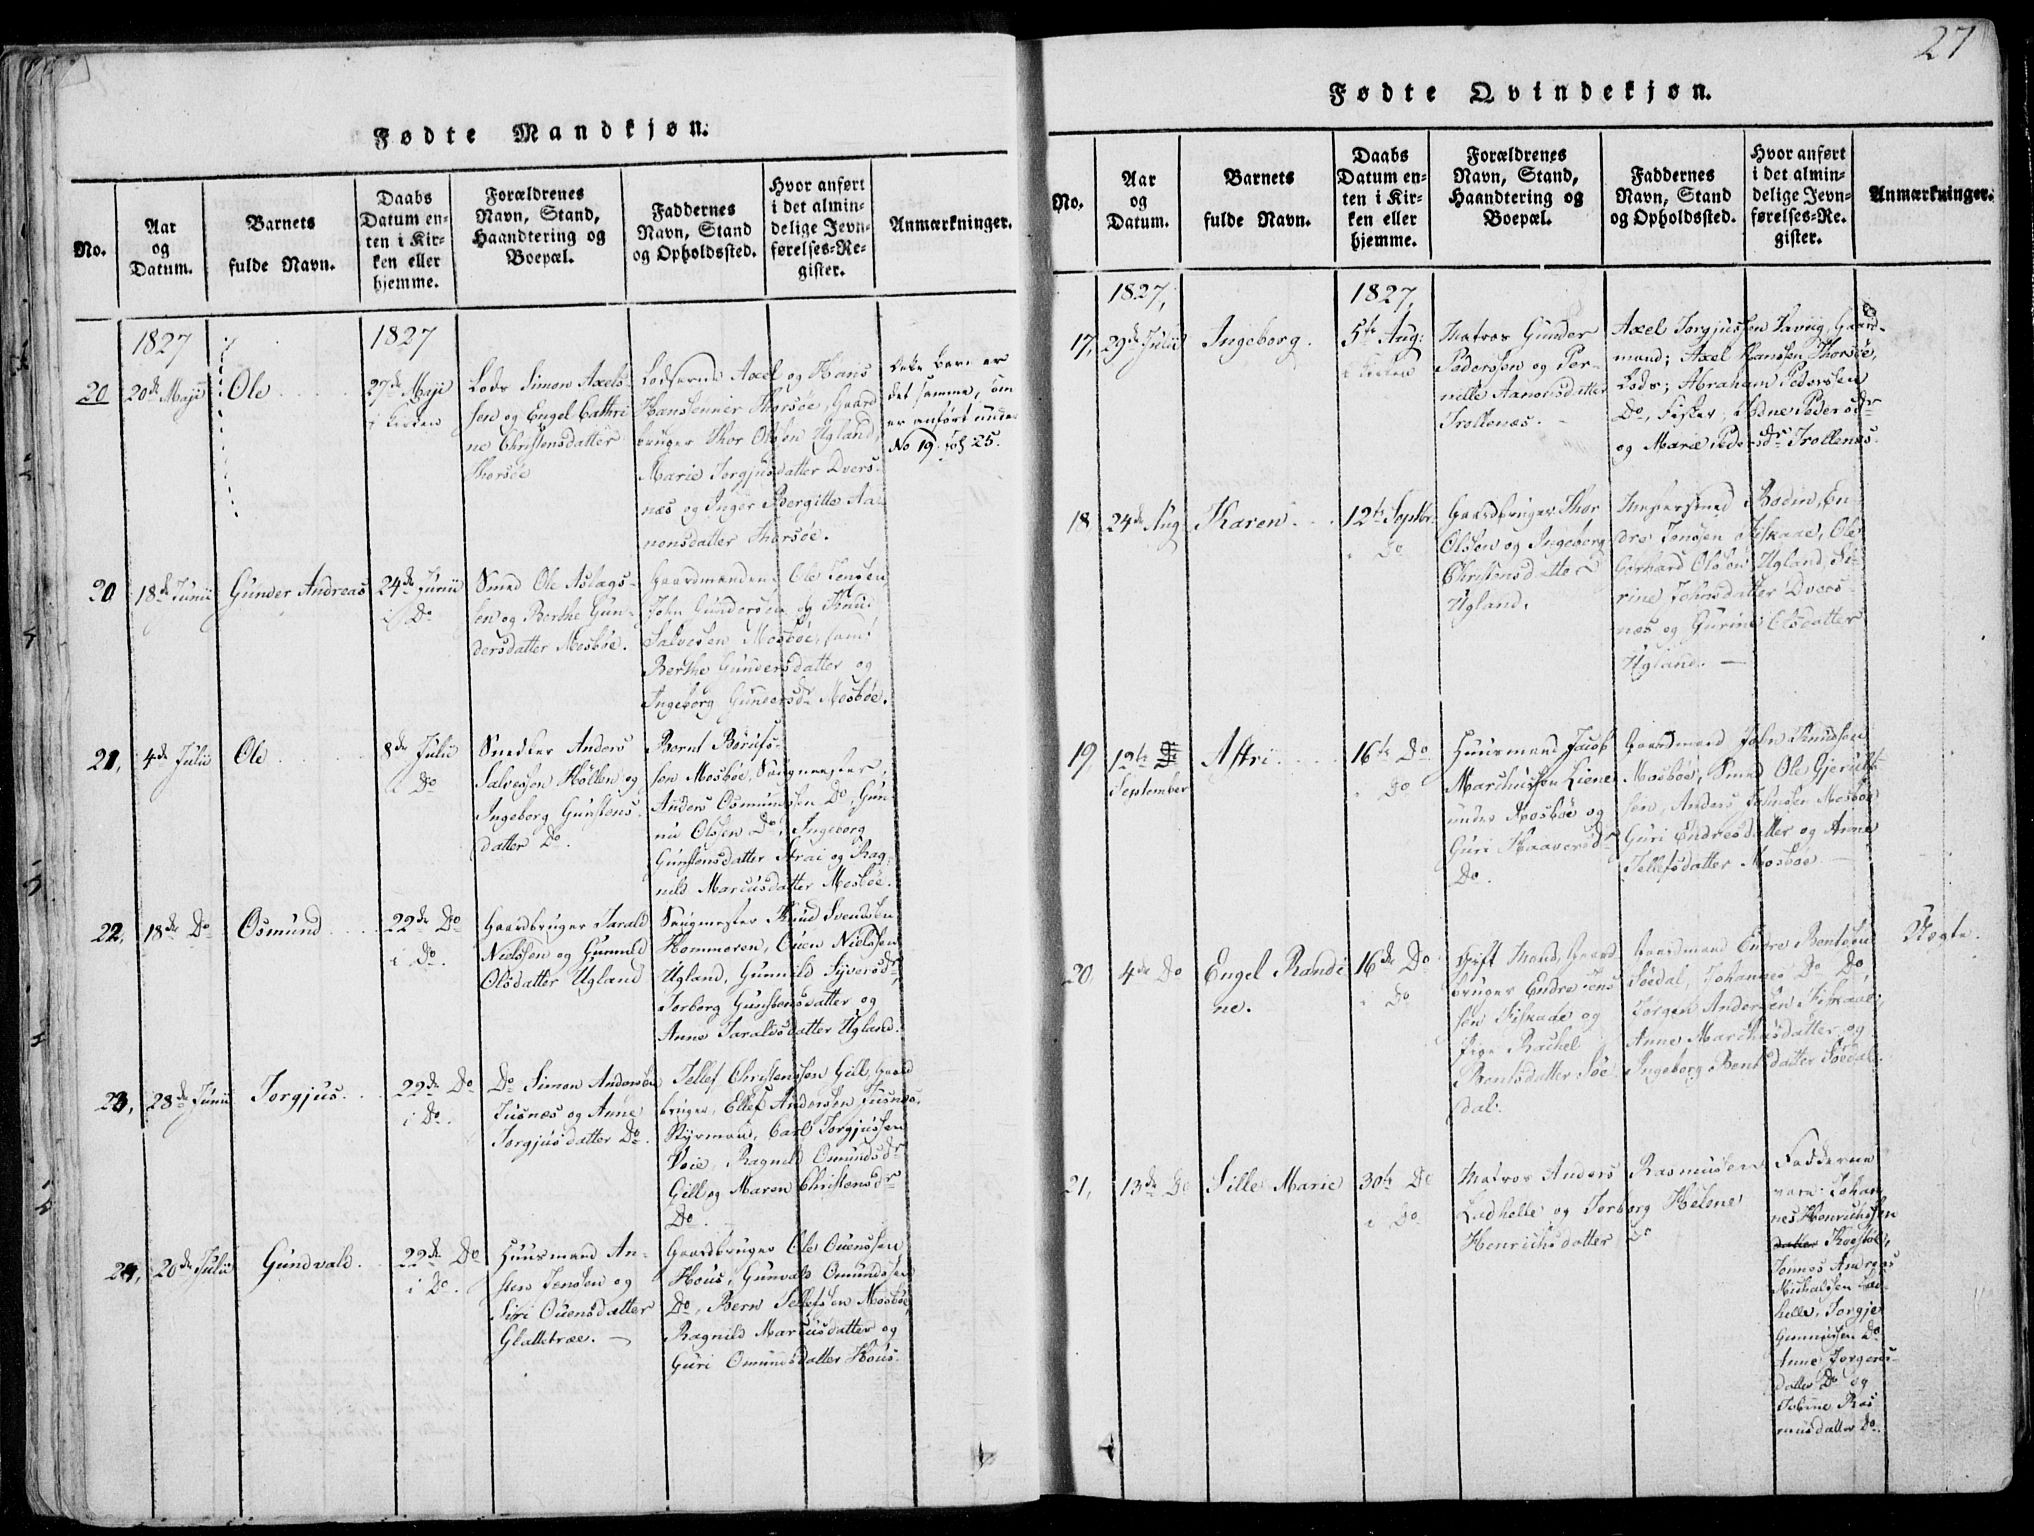 27
Fødte Mandkjøn.
No.
Aar
og
Datum.
Barnets
fulde Navn.
Daabs
Datum en-
ten i Kir-
ken eller
hjemme.
Forældrenes
Navn, Stand,
Haandtering og
Boepæl.
Faddernes
Navn, Stand
og Opholdssted.
Hvor anført
i det almin-
delige Jevn-
førelses-Re-
gister.
Anmærkninger.
1827
1827
20
20de Maji
Ole
27de Maji
i Kirken
Lods Simon Axels-
sen og Engel Cathri
ne Christensdatter
Thorsøe
Lodserne Axel og Hans
Hansenner Thorsøe, Gaard
bruger Thor Olsen Ugland,
Marie Jorgjusdatter Dvers-
næs og Inger Bergitte Aa-
nonsdatter Thorsøe.
Dette Barn er
det samme, som
er anført under
No 19. fol 25.
20
18de Junii
Gunder Andreas
24de Junii
i Do
Smed Ole Aslags-
sen og Berthe Gun-
dersdatter Mosbøe.
Gaardmændene Ole Jensen,
John Gundersen og Knud
Salvesen Mosbøe, samt
Berthe Gundersdatter og
Ingeborg Gundersdr Mosbøe.
21,
4de Julii
Ole
8de Julii
i Do
Snedker Anders
Salvesen Höllen og
Ingeborg Gunstens-
datter Do.
Bernt Berufs-
sen Mosbøe, Saugmester,
Anders Osmundsen Do, Gun-
nu Olsen Do, Ingeborg
Gunstensdatter Strai og Rag-
nild Marcusdatter Mosbøe.
22,
18de Do
Osmund
22de Do
i Do.
Gaardbruger Tarald
Nielsen og Gunnild
Olsdatter Ugland
Saugmester Knud Svendsen
Hommeren, Ouen Nielsen
Ugland, Gunnild Syversdr,
Torborg Gunstensdatter og
Anne Taraldsdatter Ugland.
23,
28de Junii
Jorgjus.
22de Do
i Do.
Do Simon Andersen
Tusnæs og Anne
Jorgjusdatter Do.
Tellef Christensen Gill, Gaard
bruger, Ellef Andersen Tusnæs,
Styrmand, Carl Jorgjussen
Voie, Ragnild Omundsdr
Gill og Maren Christensdr
Do.
24,
20de Julii
Gundvald.
22de Do
i Do.
Huusmand An-
sten Jensen og
Siri Ouensdatter
Glattetræe.
Gaardbruger Ole Ouenssen
Hous, Gunvald Omundssen
Do, Bern Tellefsen Mosbøe
Ragnild Marcusdatter og
Guri Omundsdatter Hous.
Fødte Qvindekjøn.
No.
Aar
og
Datum.
Barnets
fulde Navn.
Daabs
Datum en-
ten i Kir-
ken eller
hjemme.
Forældrenes
Navn, Stand,
Haandtering og
Boepæl.
Faddernes
Navn, Stand
og Opholdssted.
Hvor anført
i det almin-
delige Jevn-
førelses-Re-
gister.
Anmærkninger.
1827,
1827,
17,
29de Julii
Ingeborg.
5te Aug:
i Kirken
Matros Gunder
Pedersen og Per-
nille Aanonsdatter
Trollenæs.
Axel Jorgjussen Vraaig, Gaard-
mand; Axel Hansen Thorsøe,
Lods; Abraham Pedersen
Do, Fisker, Hodne Pedersdr
og Marie Pedersdr Trollenæs.
18
24de Aug
Karen
12te Septbr
i Do
Gaardbruger Thor
Olsen og Ingeborg
Christensdatter
Ugland.
Kobbersmed Rodin, En-
dre Jensen Fiskaae, Ole
Gerhard Olsen Ugland, Se-
rine Johnsdatter Dvers-
næs og Gurine Olsdatter
Ugland.
19,
12te
September
Astri
16te Do
i Do
Huusmand Jacob
Marchussen Liene
under Mosbøe og
Guri Haaversdr
Do.
Gaardmand John Knudsen
Mosbøe, Smed Ole Gjerulf-
sen, Anders Johnsen Mosbøe
Guri Endresdatter og Anne
Tellefsdatter Mosbøe
20,
4de Do
Engel Randi
ne.
16de Do
i Do
Gift Mand, Gaard
bruger Endre Jens
sen Fiskaae og
Pige Rachel
Bentsdatter Søe-
dal.
Gaardmand Endre Bentsen
Søedal, Johannes Do Do,
Jørgen Andersen Fiskaae,
Anne Marchusdatter og
Ingeborg Bentsdatter Søedal.
Uægte.
21,
13de Do
Sille Marie
30te Do
i Do
Matros Anders Rasmusen
Ladhelle og Torborg Helene
Henrichsdatter Do
Fadderne
vare: Johan-
nes Henrichsen
Roestøl,
Tønnes Andreas
Michaelsen Lad-
helle, Torgje
Gunnersen Do
Anne Jorgens-
datter Do og
Tobine Ras
musdatter Do.